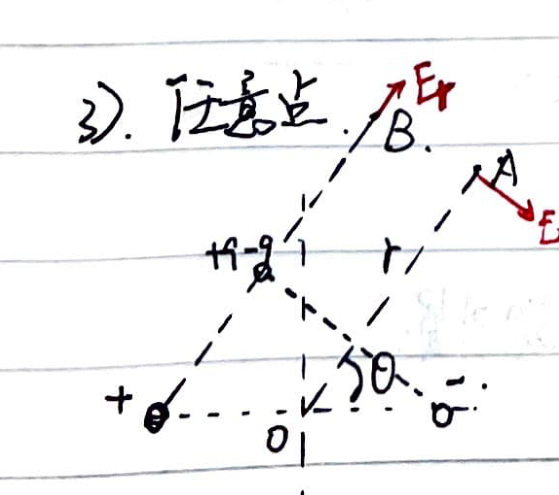 3). 任意点.
Er
B.
A
E
+q -q
r
+
θ
-.
O